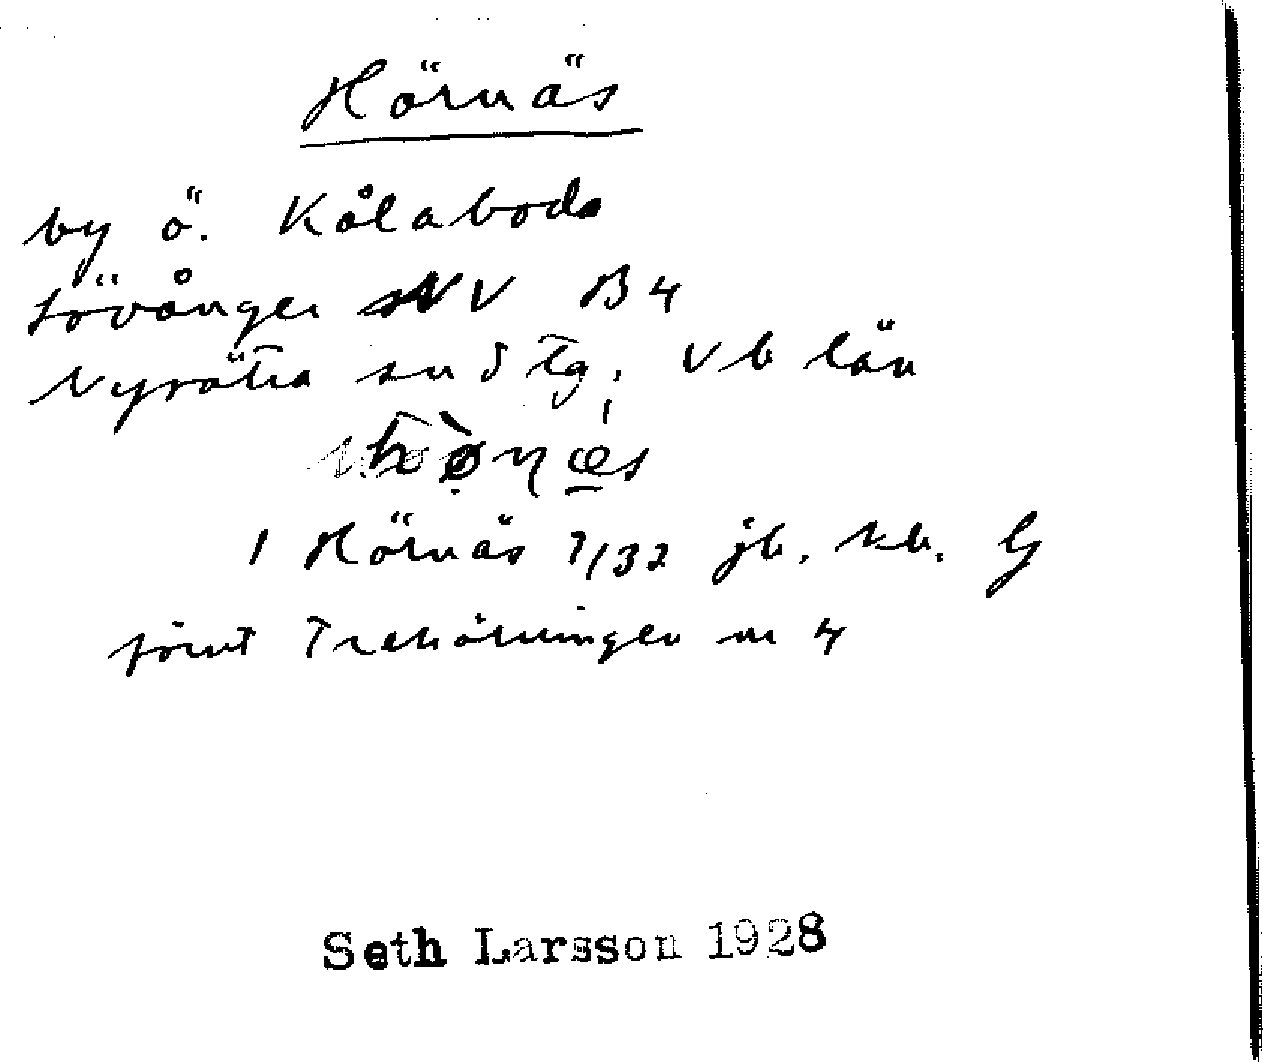 Hörnäs
by ö. Kålaboda
Lövånger NV B4
Nysätra sn S Tg. Vb län
hø̀ɳæ̲s
1 Hörnäs 7/32 jb. kb. G
förut Trehörningen nr 4
Seth Larsson 1928